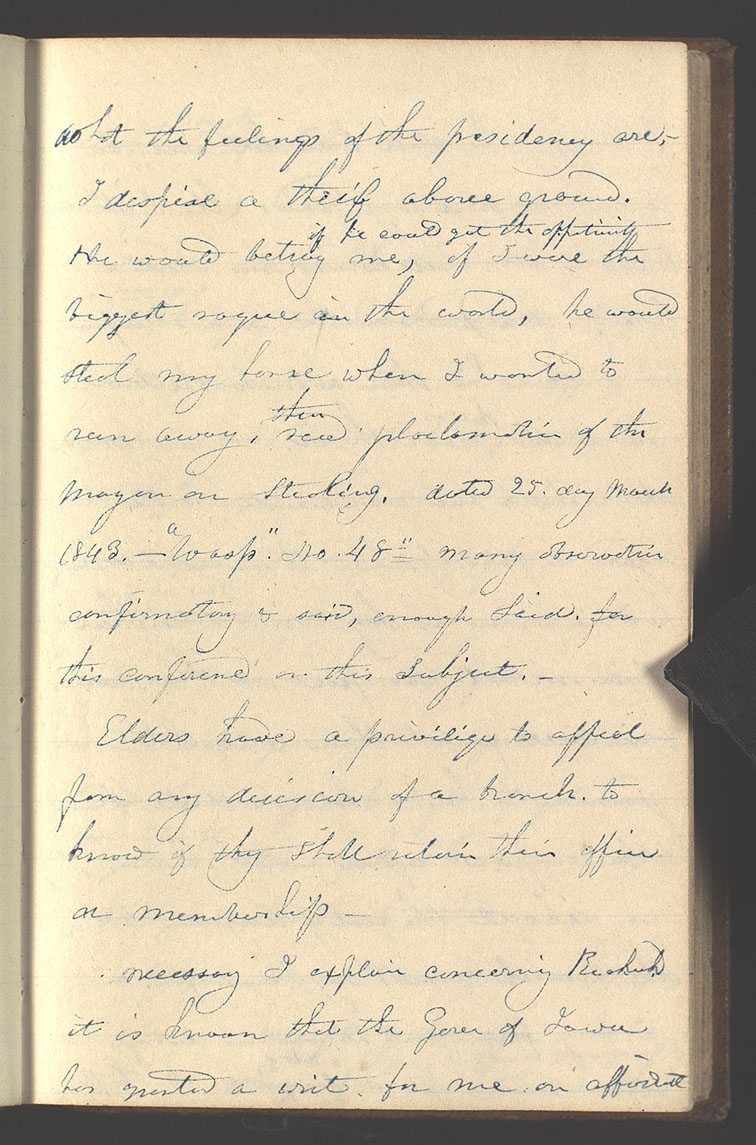 what the feelings of the presidency are,-
I despise a theif above ground.
if he could get the oppetunity
He would betray me, if I were the
biggest rogue in the world, he would
steal my horse when I wanted to
then
run away, read proclamation of the
mayor on stealing. dated 25. day March
1843. — "a Wasp". No. 48" many observation
confirmatory & said, enough said. for
this conference on this subject. —
Elders have a privilige to appeal
from any decision of a branch. to
know if they shall retain their office
or membership —
necessary I explain concerning
it is known that the Gover of Iowa
has granted a writ. for me. on affidavit